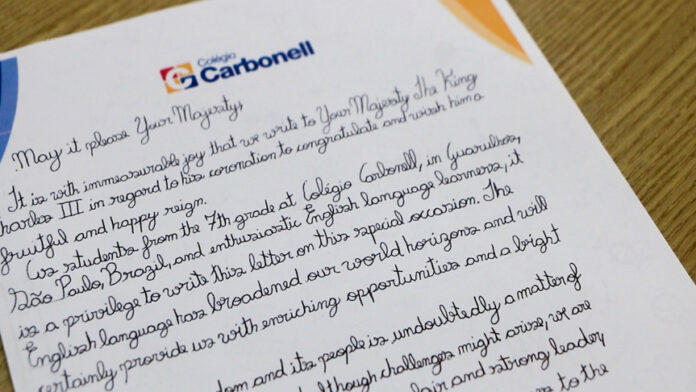 Colégio
Carbonell
May it please Your Majesty,
It is with immeasurable joy that we write to Your Majesty The King
harles III in regard to his coronation to congratulate and wish him a
fruitful and happy reign.
We students from the 7th grade at Colégio Carbonell, in Guarulhos,
São Paulo, Brazil, and enthusiastic English language learners, it
is a privilege to write this letter on this special occasion. The
English language has broadened our world horizons and will
certainly provide us with enriching opportunities and a bright
dom and its people is undoubtedly a matter of
although challenges might arise, we are
air and strong leader,
to the